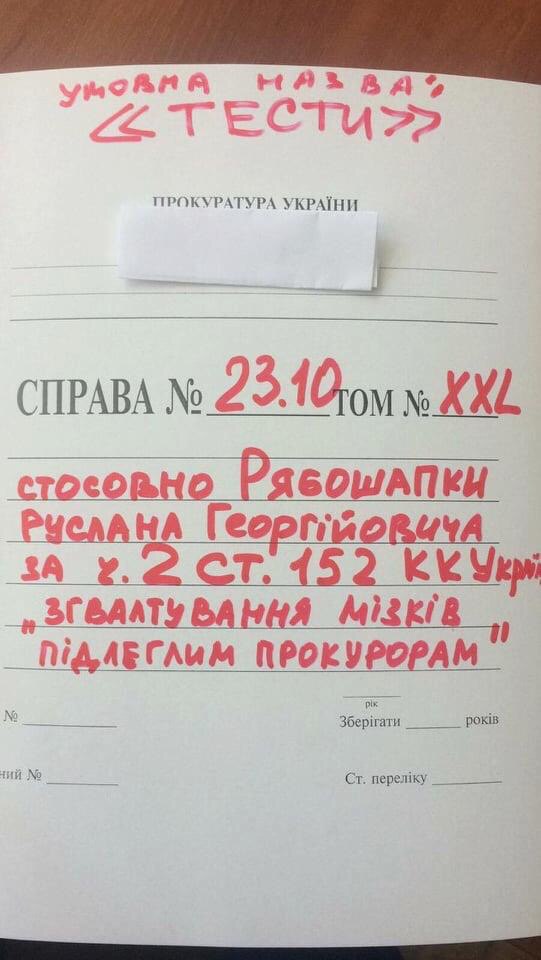 УМОВНА НАЗВА:
«ТЕСТИ»
ПРОКУРАТУРА УКРАЇНИ
СПРАВА № 23.10 ТОМ № XXL
СТОСОВНО РЯБОШАПКИ
РУСЛАНА ГЕОРГІЙОВИЧА
ЗА Ч. 2 СТ. 152 ККУкраїн
„ЗГВАЛТУВАННЯ МІЗКІВ
ПІДЛЕГЛИМ ПРОКУРОРАМ"
рік
№ Зберігати років
ний № Ст. переліку